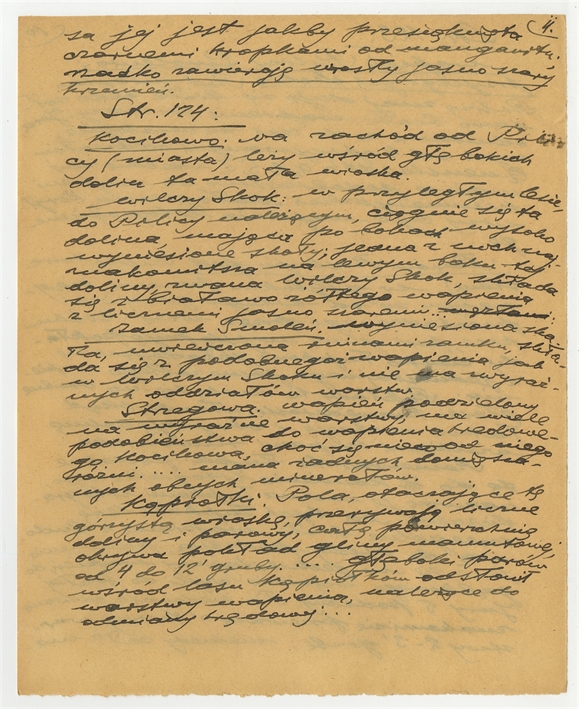 4.
sa jej jest jakby przesiąknięta
czarnemi kropkami od manganitu.
rzadko zawierają wrosły jasno szary
krzemień.
Str. 174:
Kocikowa. na zachód od Pili-
cy (miasta) leży wśród głębokich
dolin ta mała wioska.
Wilczy Skok: w przyległym lesie
do Pilicy należącym, ciągnie się ta
dolina, mająca po bokach wysoko
wyniesione skały; jedna z nich naj
znakomitsza na lewym boku tej
doliny, zwana Wilczy Skok, składa
się z białawo żółtego wapienia
z licznemi jasno szaremi ...
Zamek Smoleń. wyniesiona ska
ła, uwieńczona ruinami zamku, skła-
da się z podobnego wapienia jak
w Wilczym Skoku i nie ma wyraź-
nych oddziałów warstw.
Strzegowa. wapień podzielony
na wyraźne warstwy, ma wiele
podobieństwa do wapienia kredowe-
go Kocikowa, choć się nieco od niego
różni .... mana żadnych domiesza-
nych obcych minerałów.
Kąpiołki. Pola, otaczające tę
górzystą wioskę, przerywają liczne
doliny i parowy, całą powierzchnię
okrywa pokład gliny mamutowej,
od 4 do 12' gruby. .... głęboki parów
wśród lasu Kąpiołkom odsłonił
warstwy wapienia, należące do
odmiany kredowej ...